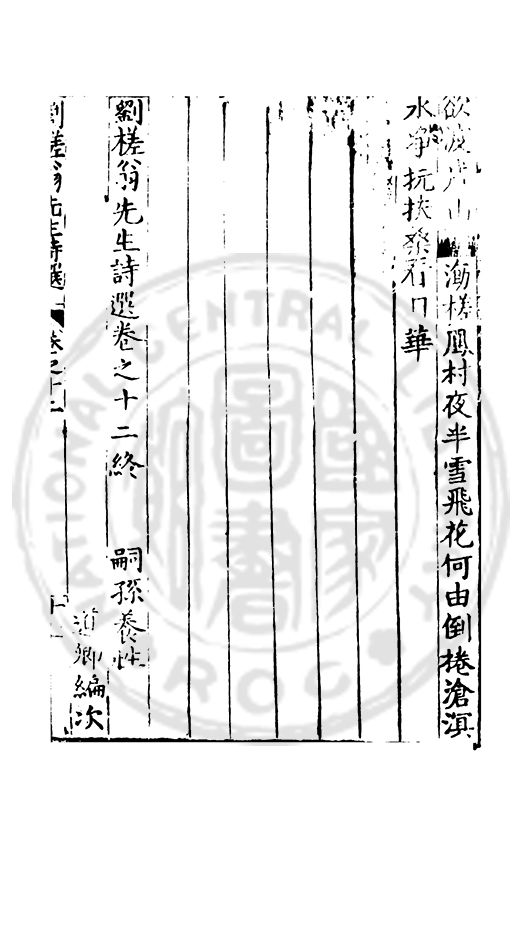 欲渡 山 漸槎鳳村夜半雪飛花何由倒捲滄溟
水淨抚扶桑看日華
劉槎翁先生詩選卷之十二終 嗣孫養性
道卿編次
劉槎翁先生詩選 卷之十二 十二
NATIONAL CENTRAL LIBRARY R.O.C.
國家圖書館